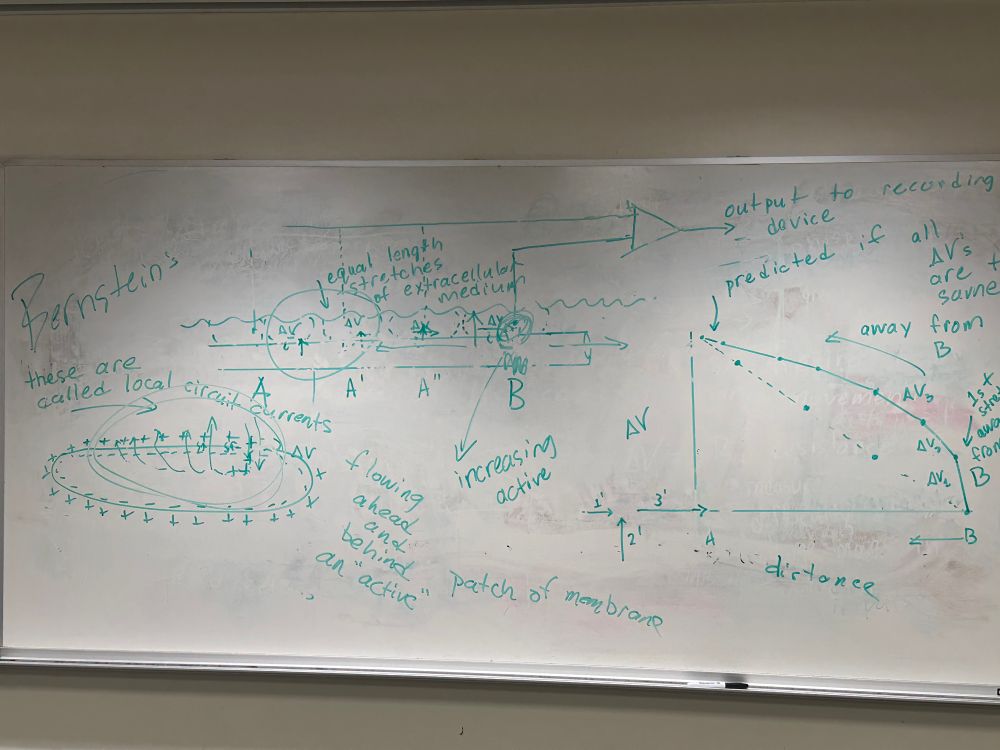 Bernstein's
these are
called local circuit currents
ΔV
flowing
ahead
and
behind
an "active"
patch of membrane
equal length
stretches
of extracellular
medium
ΔV
ΔV
ΔV
i
A
A'
A"
B
increasing
active
output to recording
device
predicted if all
ΔV's
are
same
away from
B
ΔV
ΔV3
ΔV2
ΔV1
away
from
B
1'
2'
3'
A
B
distance